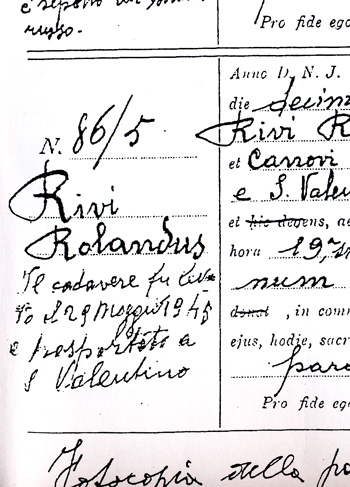 e sepolto un
russo.
Pro fide ego
N. 86/5
Rivi
Rolandus
Il cadavere fu leva-
to il 29 Maggio 1945
e trasportato a
S Valentino
Anno D. N. J.
die decim
Rivi R
et Canovi
e S. Valen
et his degens, ae
hora 19,
num
donat , in comm
ejus, hodie, sacr
paro
Pro fide ego
Fotocopia della pa